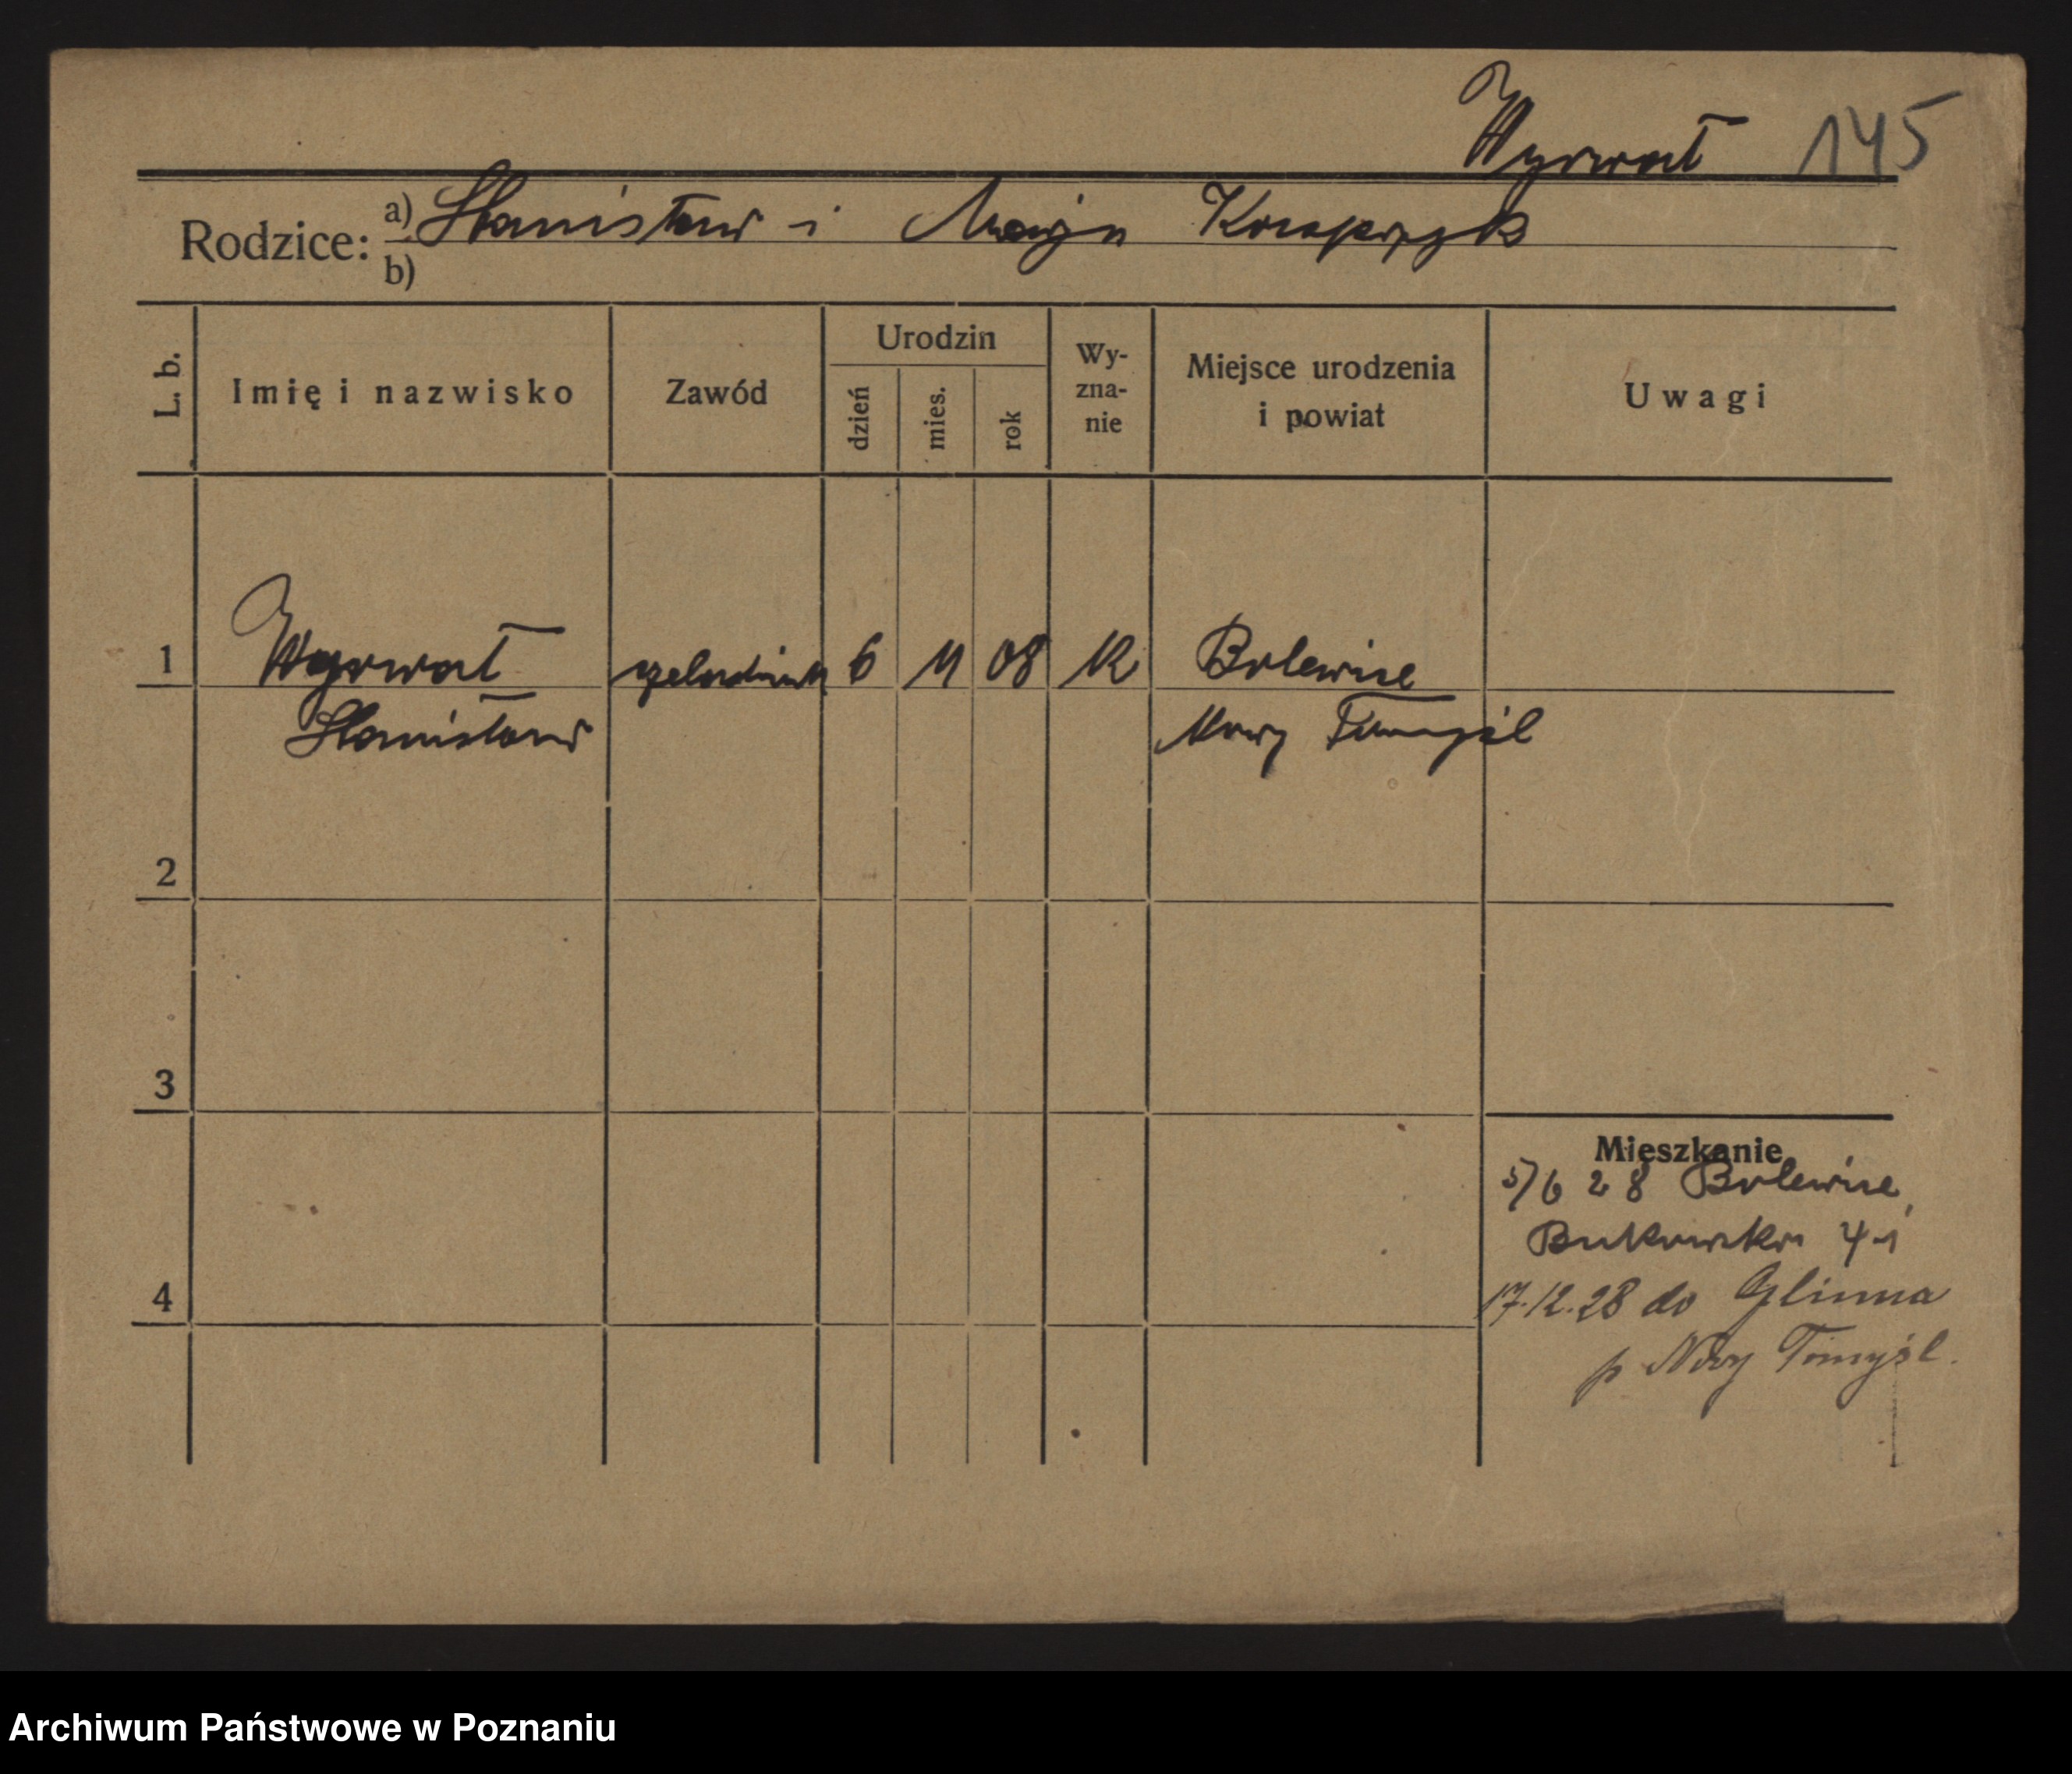 Wyrwał 145
Rodzice: a) Stanisław i Maryja
b)
L. b. Imię i nazwisko Zawód Urodzin dzień mies. rok Wy-zna-nie Miejsce urodzenia i powiat Uwagi
1 Wyrwał czeladnik 6 11 08 K Bolewice
Stanisław Nowy Tomyśl
2
3
Mieszkanie
5/6 28 Bolewice,
Bukowska 4-1
4 17.12.28 do Glinna
p Nowy Tomyśl.
Archiwum Państwowe w Poznaniu